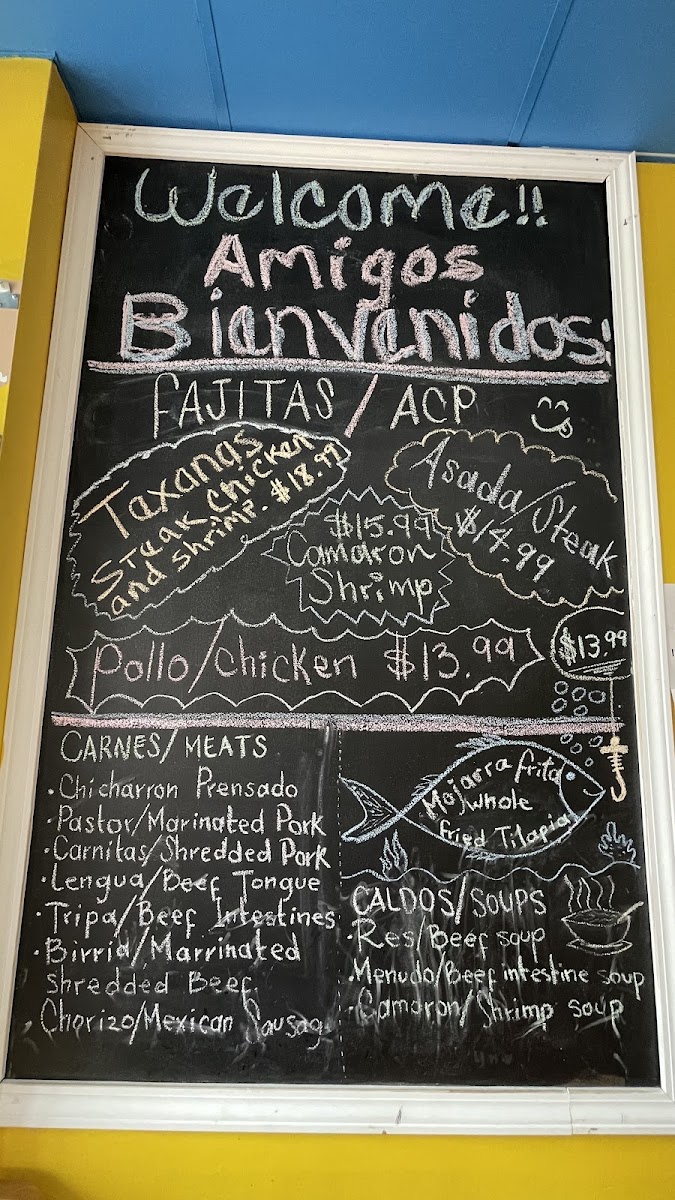 Welcome!!
Amigos
Bienvenidos!
FAJITAS/ACP
Taxanas
Steak chicken
and shrimp. $18.99
Asada/Steak
$14.99
$15.99
Camaron
Shrimp
Pollo/chicken $13.99
$13.99
CARNES/MEATS
• Chicharron Prensado
• Pastor/Marinated Pork
• Carnitas/Shredded Pork
• Lengua/Beef Tongue
• Tripa/Beef Intestines
• Birria/Marrinated
Shredded Beef
• Chorizo/Mexican Sausag
Mojarra frita
/whole
fried Tilapia
CALDOS/SOUPS
• Res/Beef soup
• Menudo/Beef intestine soup
• Camaron/Shrimp soup